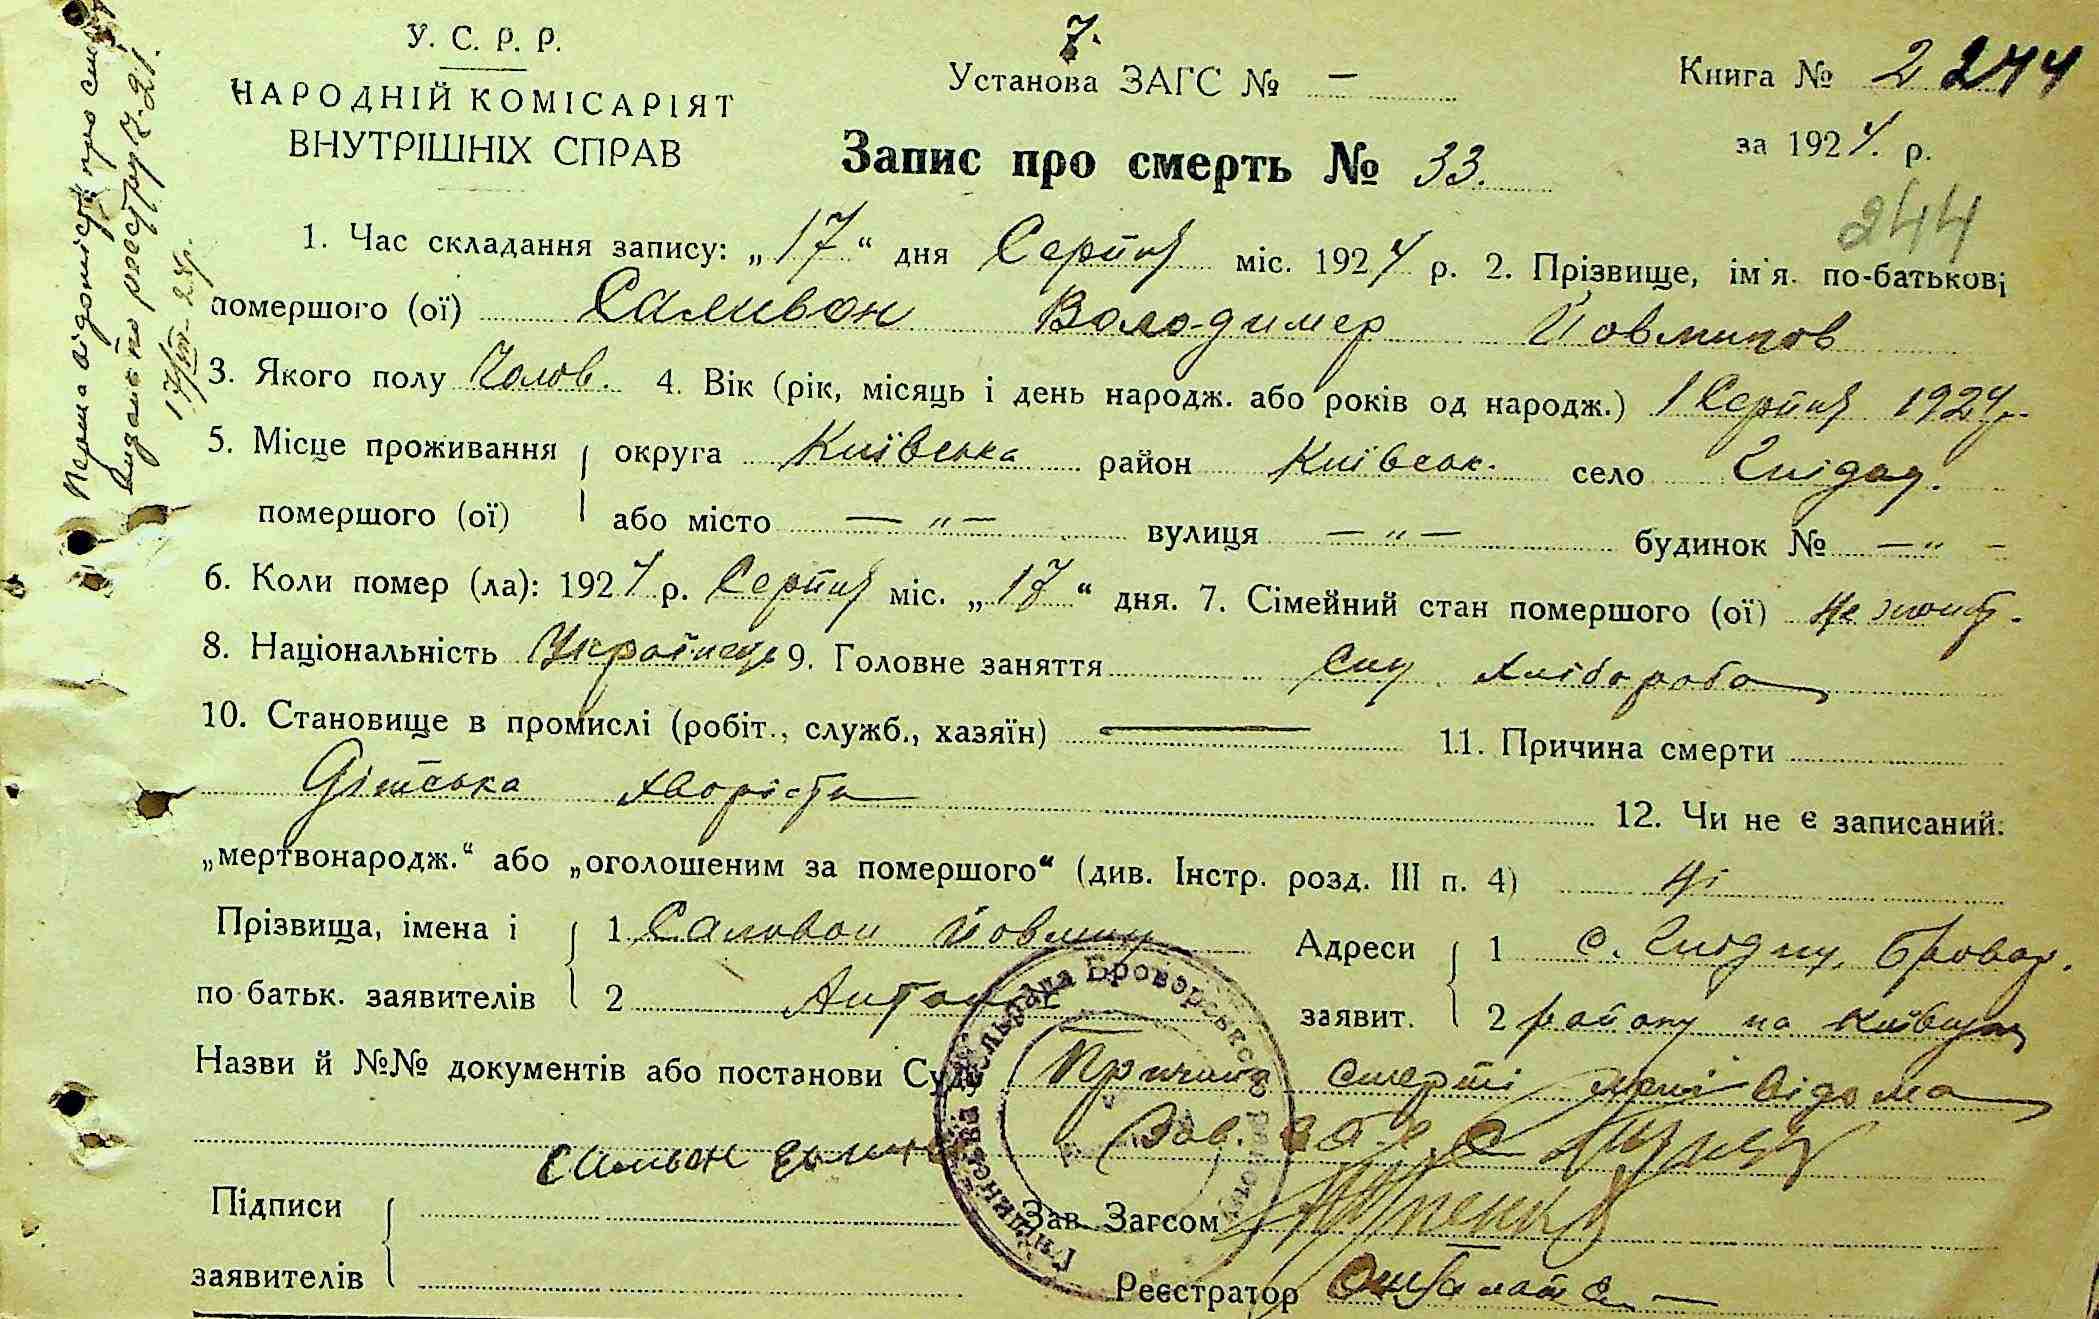 У. С. Р. Р.
НАРОДНІЙ КОМІСАРІЯТ
ВНУТРІШНІХ СПРАВ
7.
Установа ЗАГС № —
Книга № 2 244
за 1924 р.
Запис про смерть № 33.
244
1. Час складання запису: „17“ дня Серпня міс. 1924 р. 2. Прізвище, ім'я. по-батькові
помершого (ої) Саливон Володимер Йовмипов
3. Якого полу Чолов. 4. Вік (рік, місяць і день народж. або років од народж.) 1 Серпня 1924 р.
5. Місце проживання округа Київська район Київськ. село Гнідин.
помершого (ої) або місто — „ — вулиця — „ — будинок № — „ —
6. Коли помер (ла): 1924 р. Серпня міс. „17“ дня. 7. Сімейний стан помершого (ої) не жонат.
8. Національність Українець 9. Головне заняття син хлібороба
10. Становище в промислі (робіт., служб., хазяїн) — 11. Причина смерти
Дітська хворість
12. Чи не є записаний:
„мертвонародж.“ або „оголошеним за помершого“ (див. Інстр. розд. III п. 4) Ні
Прізвища, імена і 1 Саливон Йовмип Адреси 1 с. Гнідин, Бровар.
по батьк. заявителів 2 заявит. 2 району на Київщ
Назви й №№ документів або постанови Суду Причина смерті мені відома
Зав.
Саливон
Підписи
заявителів
Зав. Загсом
Реєстратор
Гнідинська сільрада Броварського району
Перша відомість про смерть
видана по реєстру № 21.
17/VIII-24р.